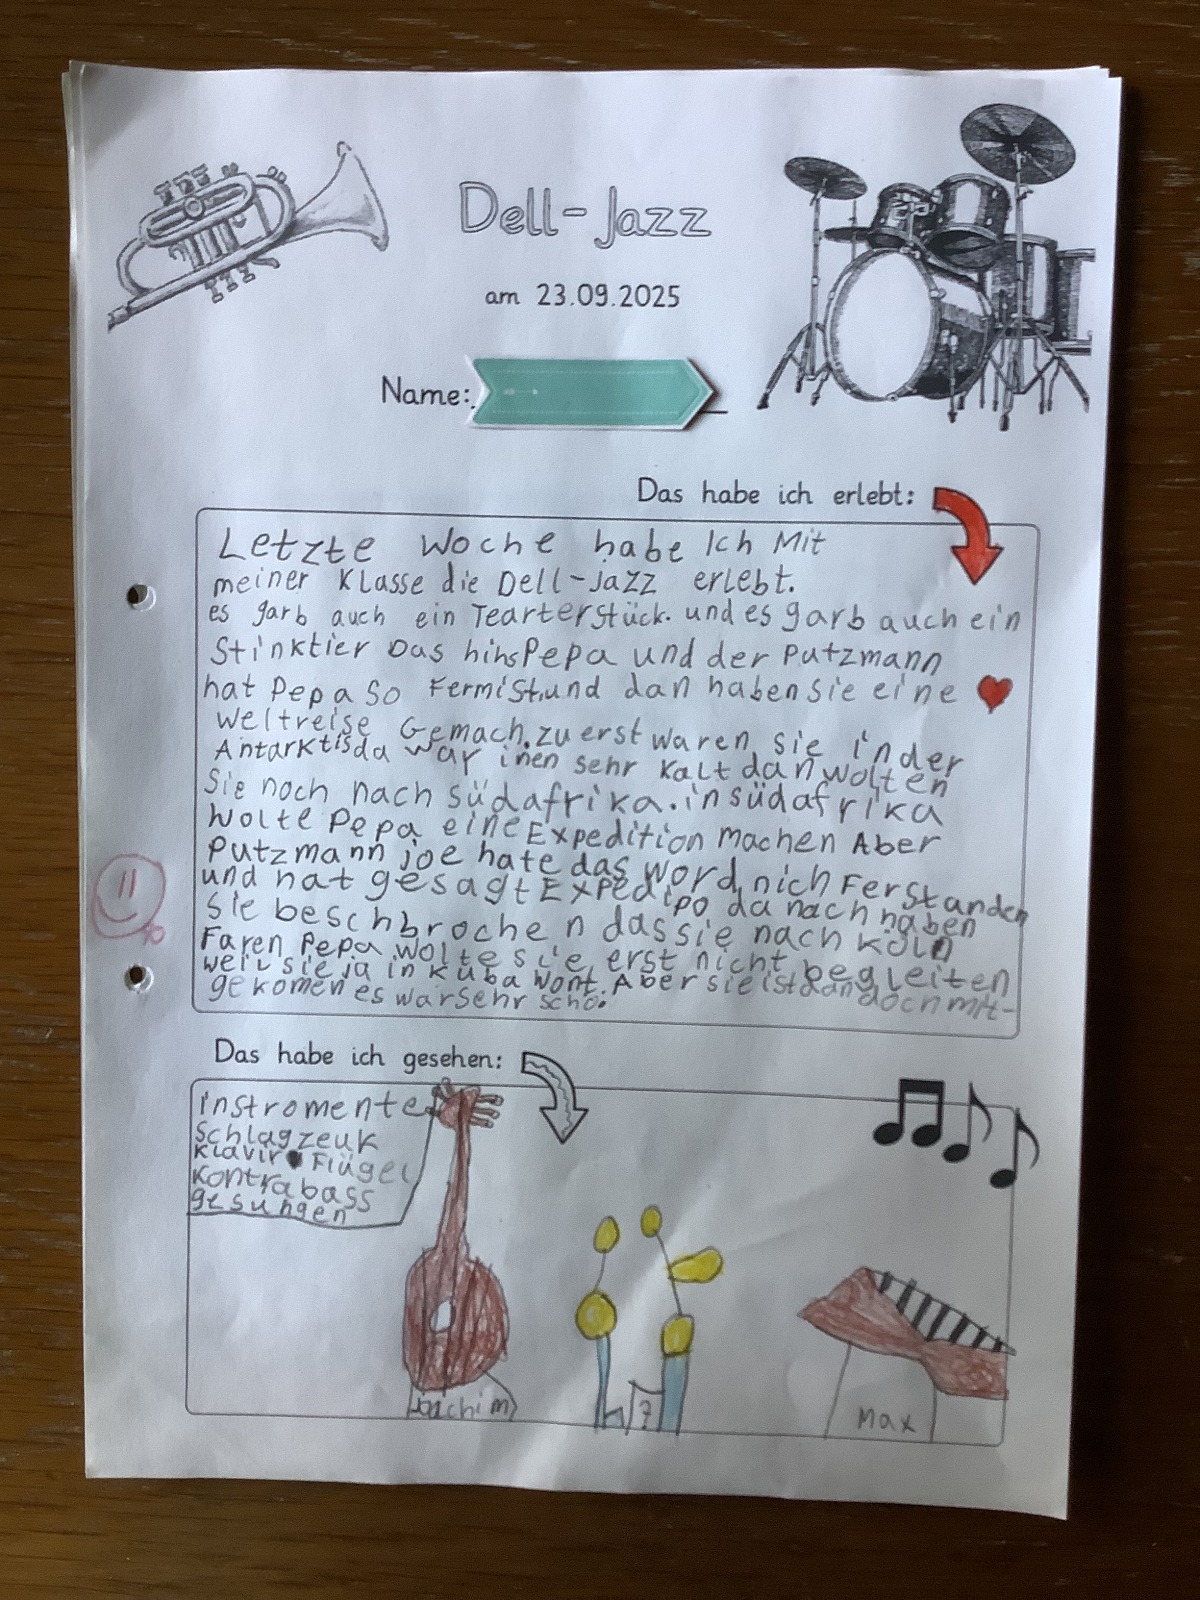 Dell-Jazz
am 23.09.2025
Name:
Das habe ich erlebt:
Letzte Woche habe Ich Mit
meiner Klasse die Dell-jazz erlebt.
es garb auch ein Tearterstück. und es garb auch ein
Stinktier Das hihs Pepa und der Putzmann
hat Pepa So Fermist.und dan haben Sie eine
weltreise Gemach.zu erst waren sie in der
Antarktis da war inen sehr Kalt dan wolten
Sie noch nach Südafrika.in südafrika
wolte Pepa eine Expedition machen Aber
Putzmann joe hate das word nich Ferstanden
und hat gesagt Expedipo da nach haben
sie beschbrochen das sie nach Köln
Faren Pepa wolte sie erst nicht begleiten
weil sie ja in Kuba wont. Aber sie ist dan doch mit-
gekomen es war sehr schö.
Das habe ich gesehen:
instromente
Schlagzeuk
Klavir Flügel
Kontrabass
gesungen
Joachim
?
Max